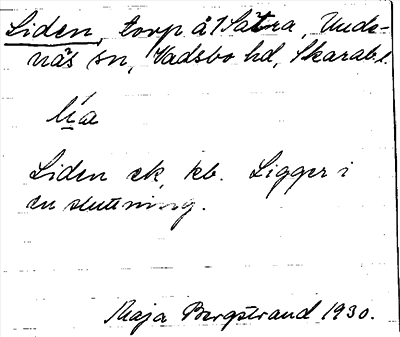 Liden, torp å 1 Sätra, Undenäs
näs sn, Vadsbo hd, Skarab.l.
Lía
Liden ek, kb. Ligger i
en sluttning.
Maja Bergstrand 1930.